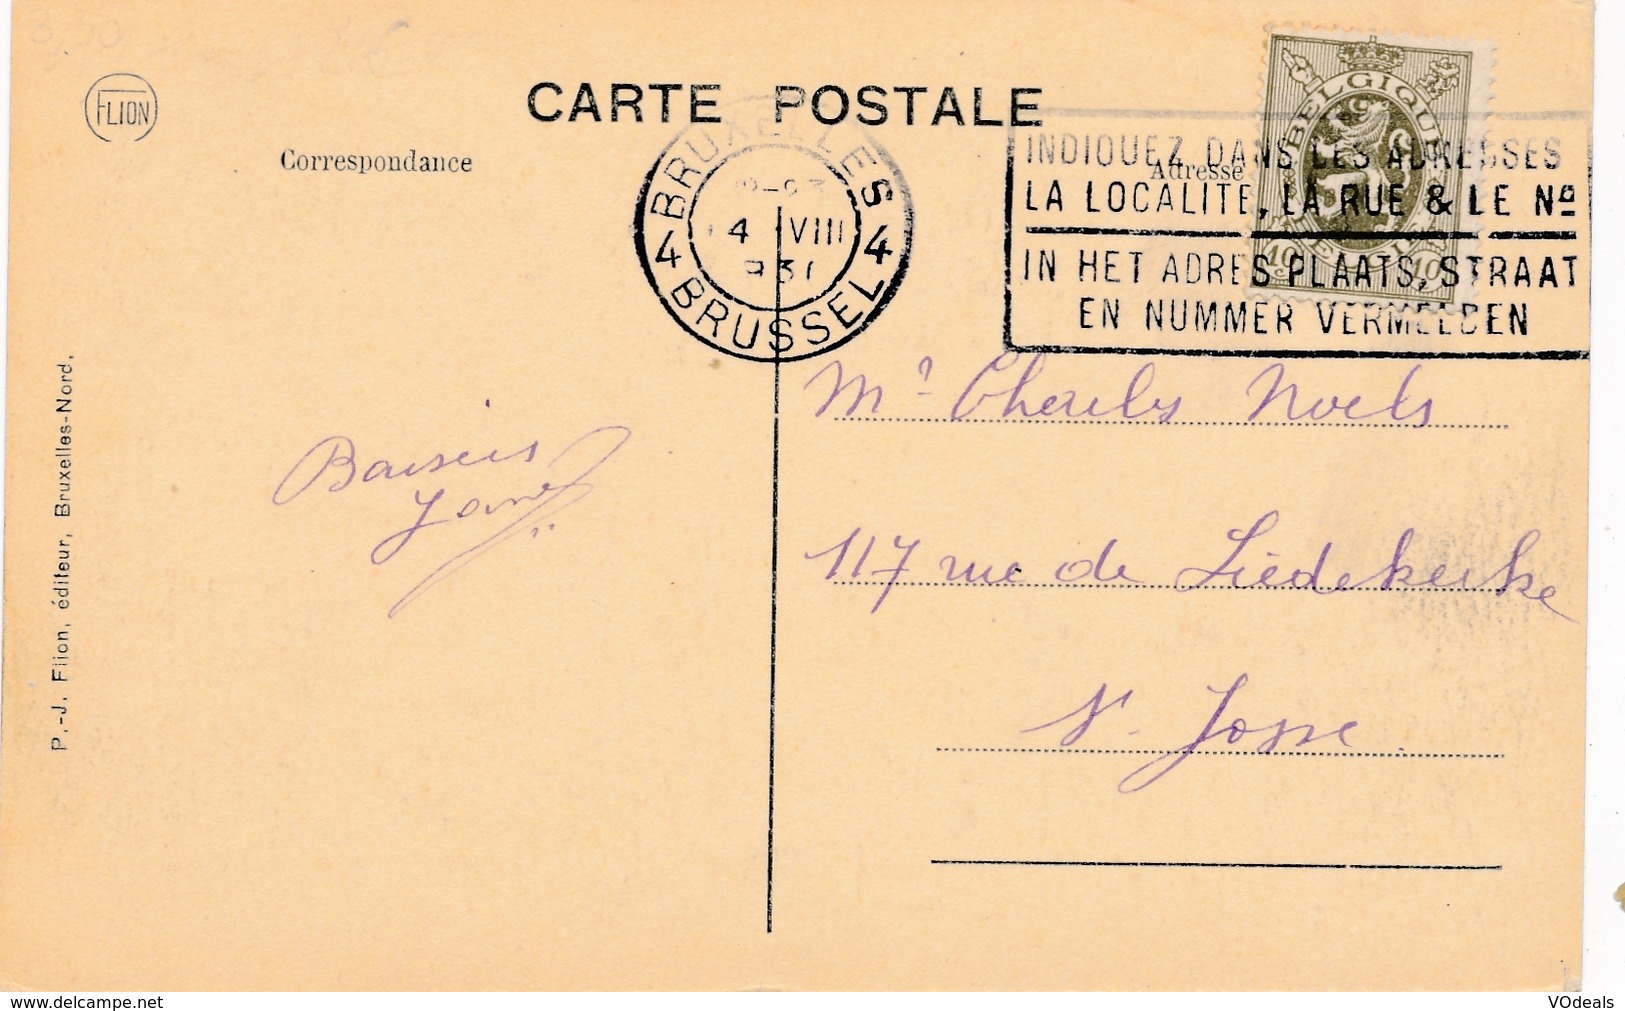 FLION
CARTE POSTALE
Correspondance
Adresse
BRUXELLES
4 VIII
931
4 4
BRUSSEL
INDIQUEZ DANS LES ADRESSES
LA LOCALITE, LA RUE & LE Nº
IN HET ADRES PLAATS, STRAAT
EN NUMMER VERMELDEN
BELGIQUE
BELGIE
10 10
Mr Charles Noels
Baisers
117 rue de Liedekerke
St. Josse
P.-J. Flion, éditeur, Bruxelles-Nord.
www.delcampe.net
VOdeals